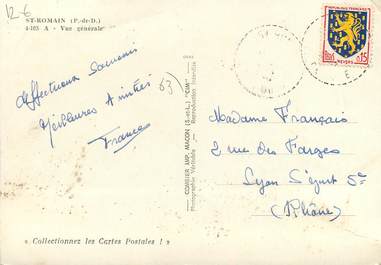 12-6
ST-ROMAIN (P.-de-D.)
4-103 A - Vue générale
Affectueux Souvenir
Meilleures Amitiés
France
63
COMBIER IMP. MACON (S.-et-L.) "CIM"
Photographie Véritable - Reproduction Interdite
0.15
NEVERS
Madame Français
2 rue des Farges
Lyon St Just 5e
(Rhône)
« Collectionnez les Cartes Postales ! »